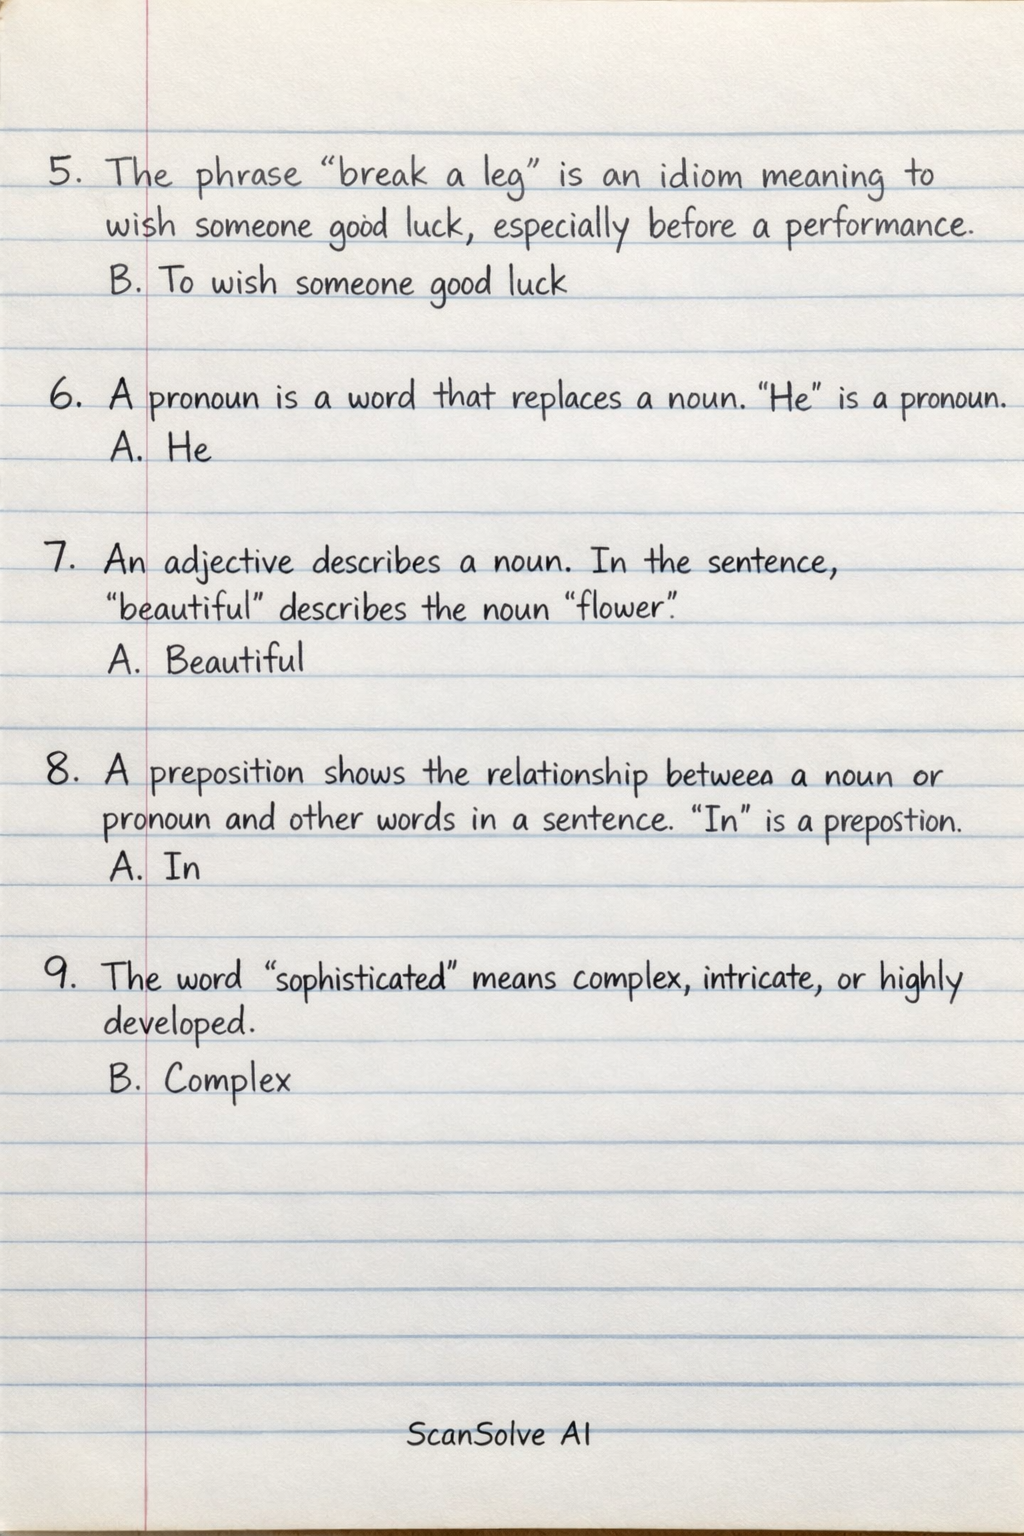 5. The phrase “break a leg” is an idiom meaning to
wish someone good luck, especially before a performance.
B. To wish someone good luck
6. A pronoun is a word that replaces a noun. “He” is a pronoun.
A. He
7. An adjective describes a noun. In the sentence,
“beautiful” describes the noun “flower”.
A. Beautiful
8. A preposition shows the relationship between a noun or
pronoun and other words in a sentence. “In” is a prepostion.
A. In
9. The word “sophisticated” means complex, intricate, or highly
developed.
B. Complex
ScanSolve AI